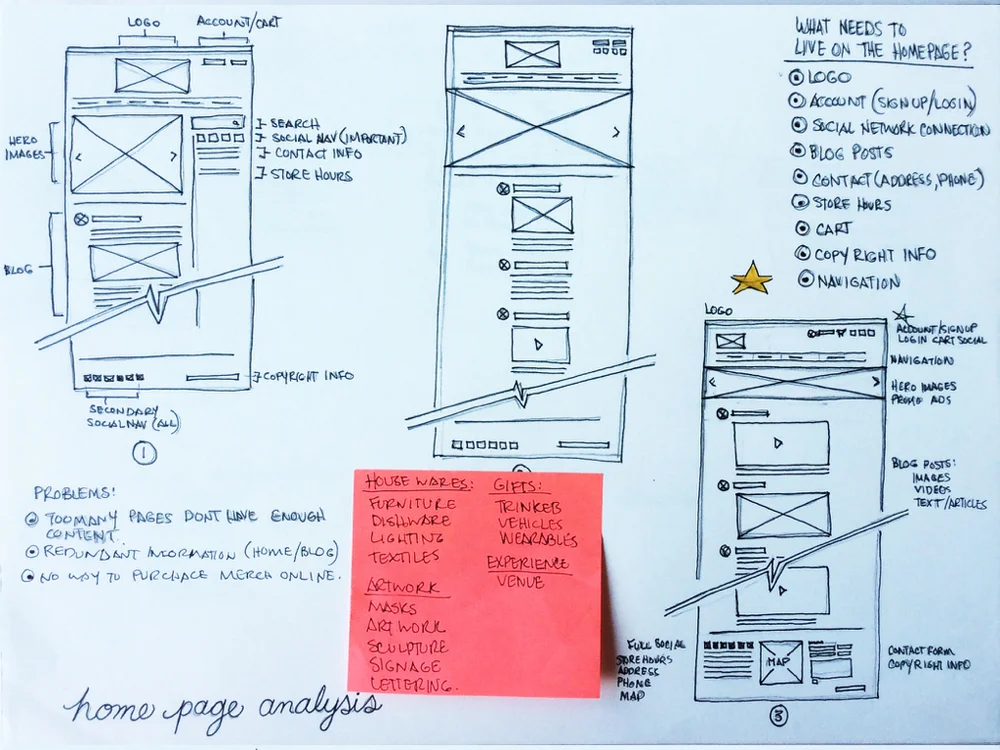 LOGO
ACCOUNT/CART
HERO
IMAGES
SEARCH
SOCIAL NAV (IMPORTANT)
CONTACT INFO
STORE HOURS
BLOG
COPYRIGHT INFO
SECONDARY
SOCIAL NAV (ALL)
1
WHAT NEEDS TO
LIVE ON THE HOMEPAGE?
LOGO
ACCOUNT (SIGNUP/LOGIN)
SOCIAL NETWORK CONNECTION
BLOG POSTS
CONTACT (ADDRESS, PHONE)
STORE HOURS
CART
COPYRIGHT INFO
NAVIGATION
LOGO
ACCOUNT/SIGNUP
LOGIN CART SOCIAL
NAVIGATION
HERO IMAGES
PROMO ADS
BLOG POSTS:
IMAGES
VIDEOS
TEXT/ARTICLES
MAP
FULL SOCIAL
STORE HOURS
ADDRESS
PHONE
MAP
CONTACT FORM
COPYRIGHT INFO
3
PROBLEMS:
TOO MANY PAGES DONT HAVE ENOUGH
CONTENT.
REDUNDANT INFORMATION (HOME/BLOG)
NO WAY TO PURCHASE MERCH ONLINE.
HOUSE WARES:
FURNITURE
DISHWARE
LIGHTING
TEXTILES
ARTWORK
MASKS
ART WORK
SCULPTURE
SIGNAGE
LETTERING.
GIFTS:
TRINKETS
VEHICLES
WEARABLES
EXPERIENCE
VENUE
home page analysis